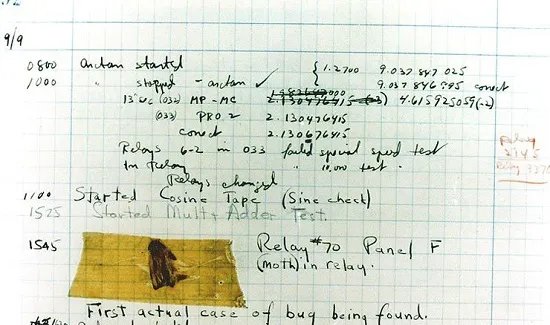 9/9
0800 arctan started { 1.2700 9.037 847 025
1000 " stopped - arctan ✓ 9.037 846 995 correct
13"uc (032) MP-MC 2.130476415 (-3) 4.615925059(-2)
(033) PRO 2 2.130476415
correct 2.130676415
Relays 6-2 in 033 failed special speed test
In Relay " 10,000 test.
Relays changed
Relay
2145
Relay 3370
1100 Started Cosine Tape (Sine check)
1525 Started Mult+Adder Test.
1545 Relay #70 Panel F
(moth) in relay.
First actual case of bug being found.